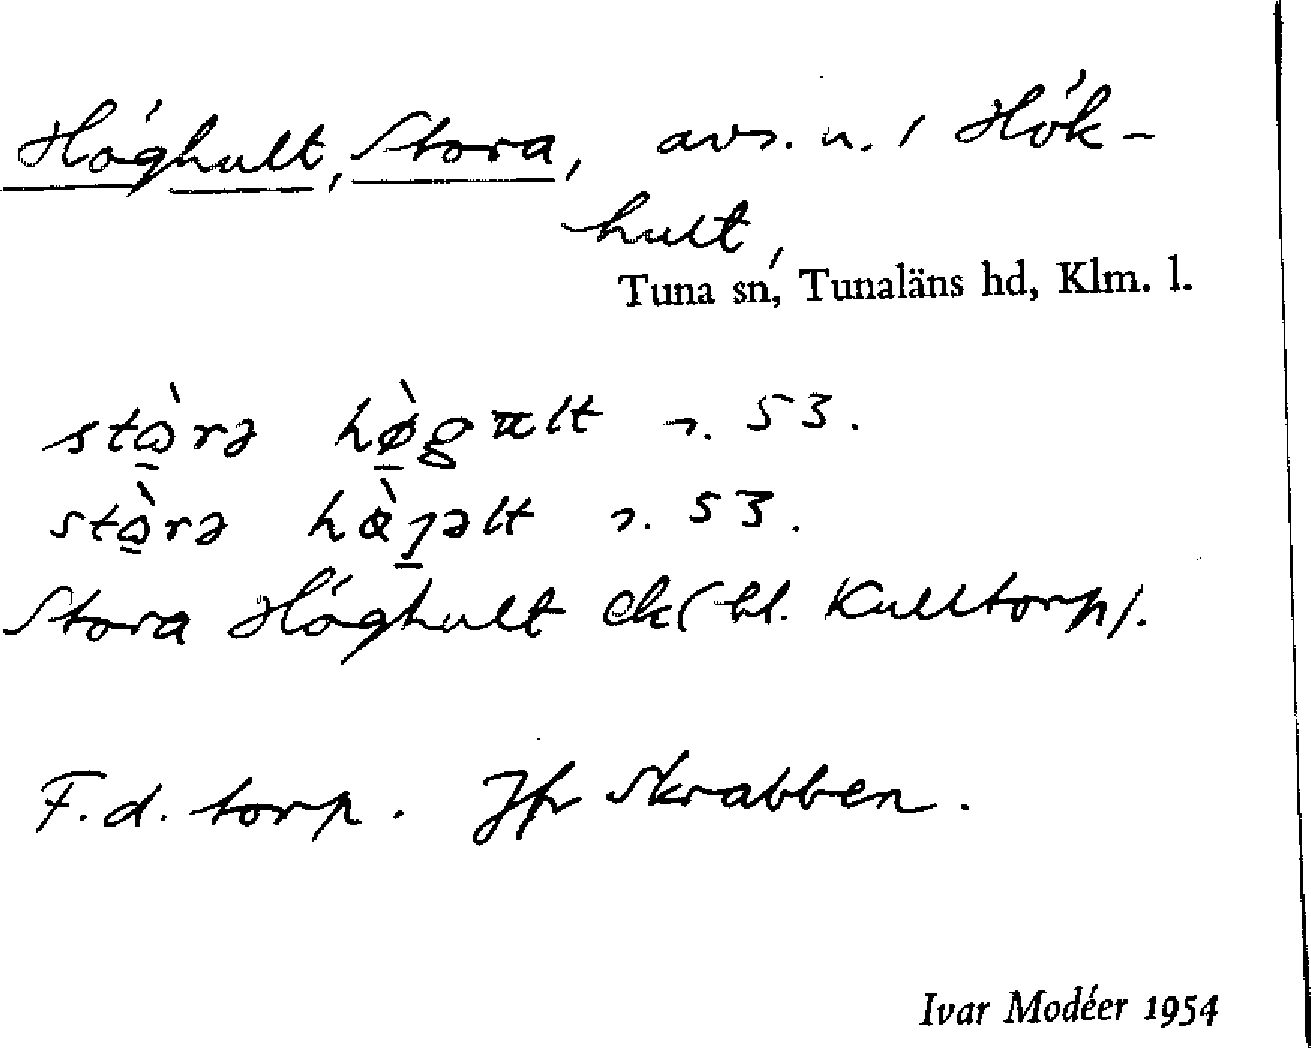 Höghult, Stora, avs. u. i Hökhult,
Tuna sn, Tunaläns hd, Klm. l.
53.
53.
Stora Höghult ek (bl. Kulltorp).
F.d. torp. Jfr Skrabben.
Ivar Modéer 1954